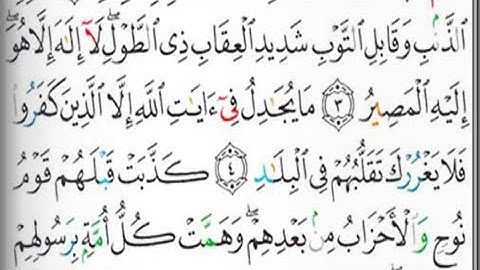 الذَّنۢبِ وَقَابِلِ التَّوْبِ شَدِيدِ الْعِقَابِ ذِى الطَّوْلِۖ لَآ إِلَٰهَ إِلَّا هُوَۖ
إِلَيْهِ الْمَصِيرُ ﴿٣﴾ مَا يُجَٰدِلُ فِىٓ ءَايَٰتِ اللَّهِ إِلَّا الَّذِينَ كَفَرُوا۟
فَلَا يَغْرُرْكَ تَقَلُّبُهُمْ فِى الْبِلَٰدِ ﴿٤﴾ كَذَّبَتْ قَبْلَهُمْ قَوْمُ
نُوحٍ وَالْأَحْزَابُ مِنۢ بَعْدِهِمْۖ وَهَمَّتْ كُلُّ أُمَّةٍۭ بِرَسُولِهِمْ